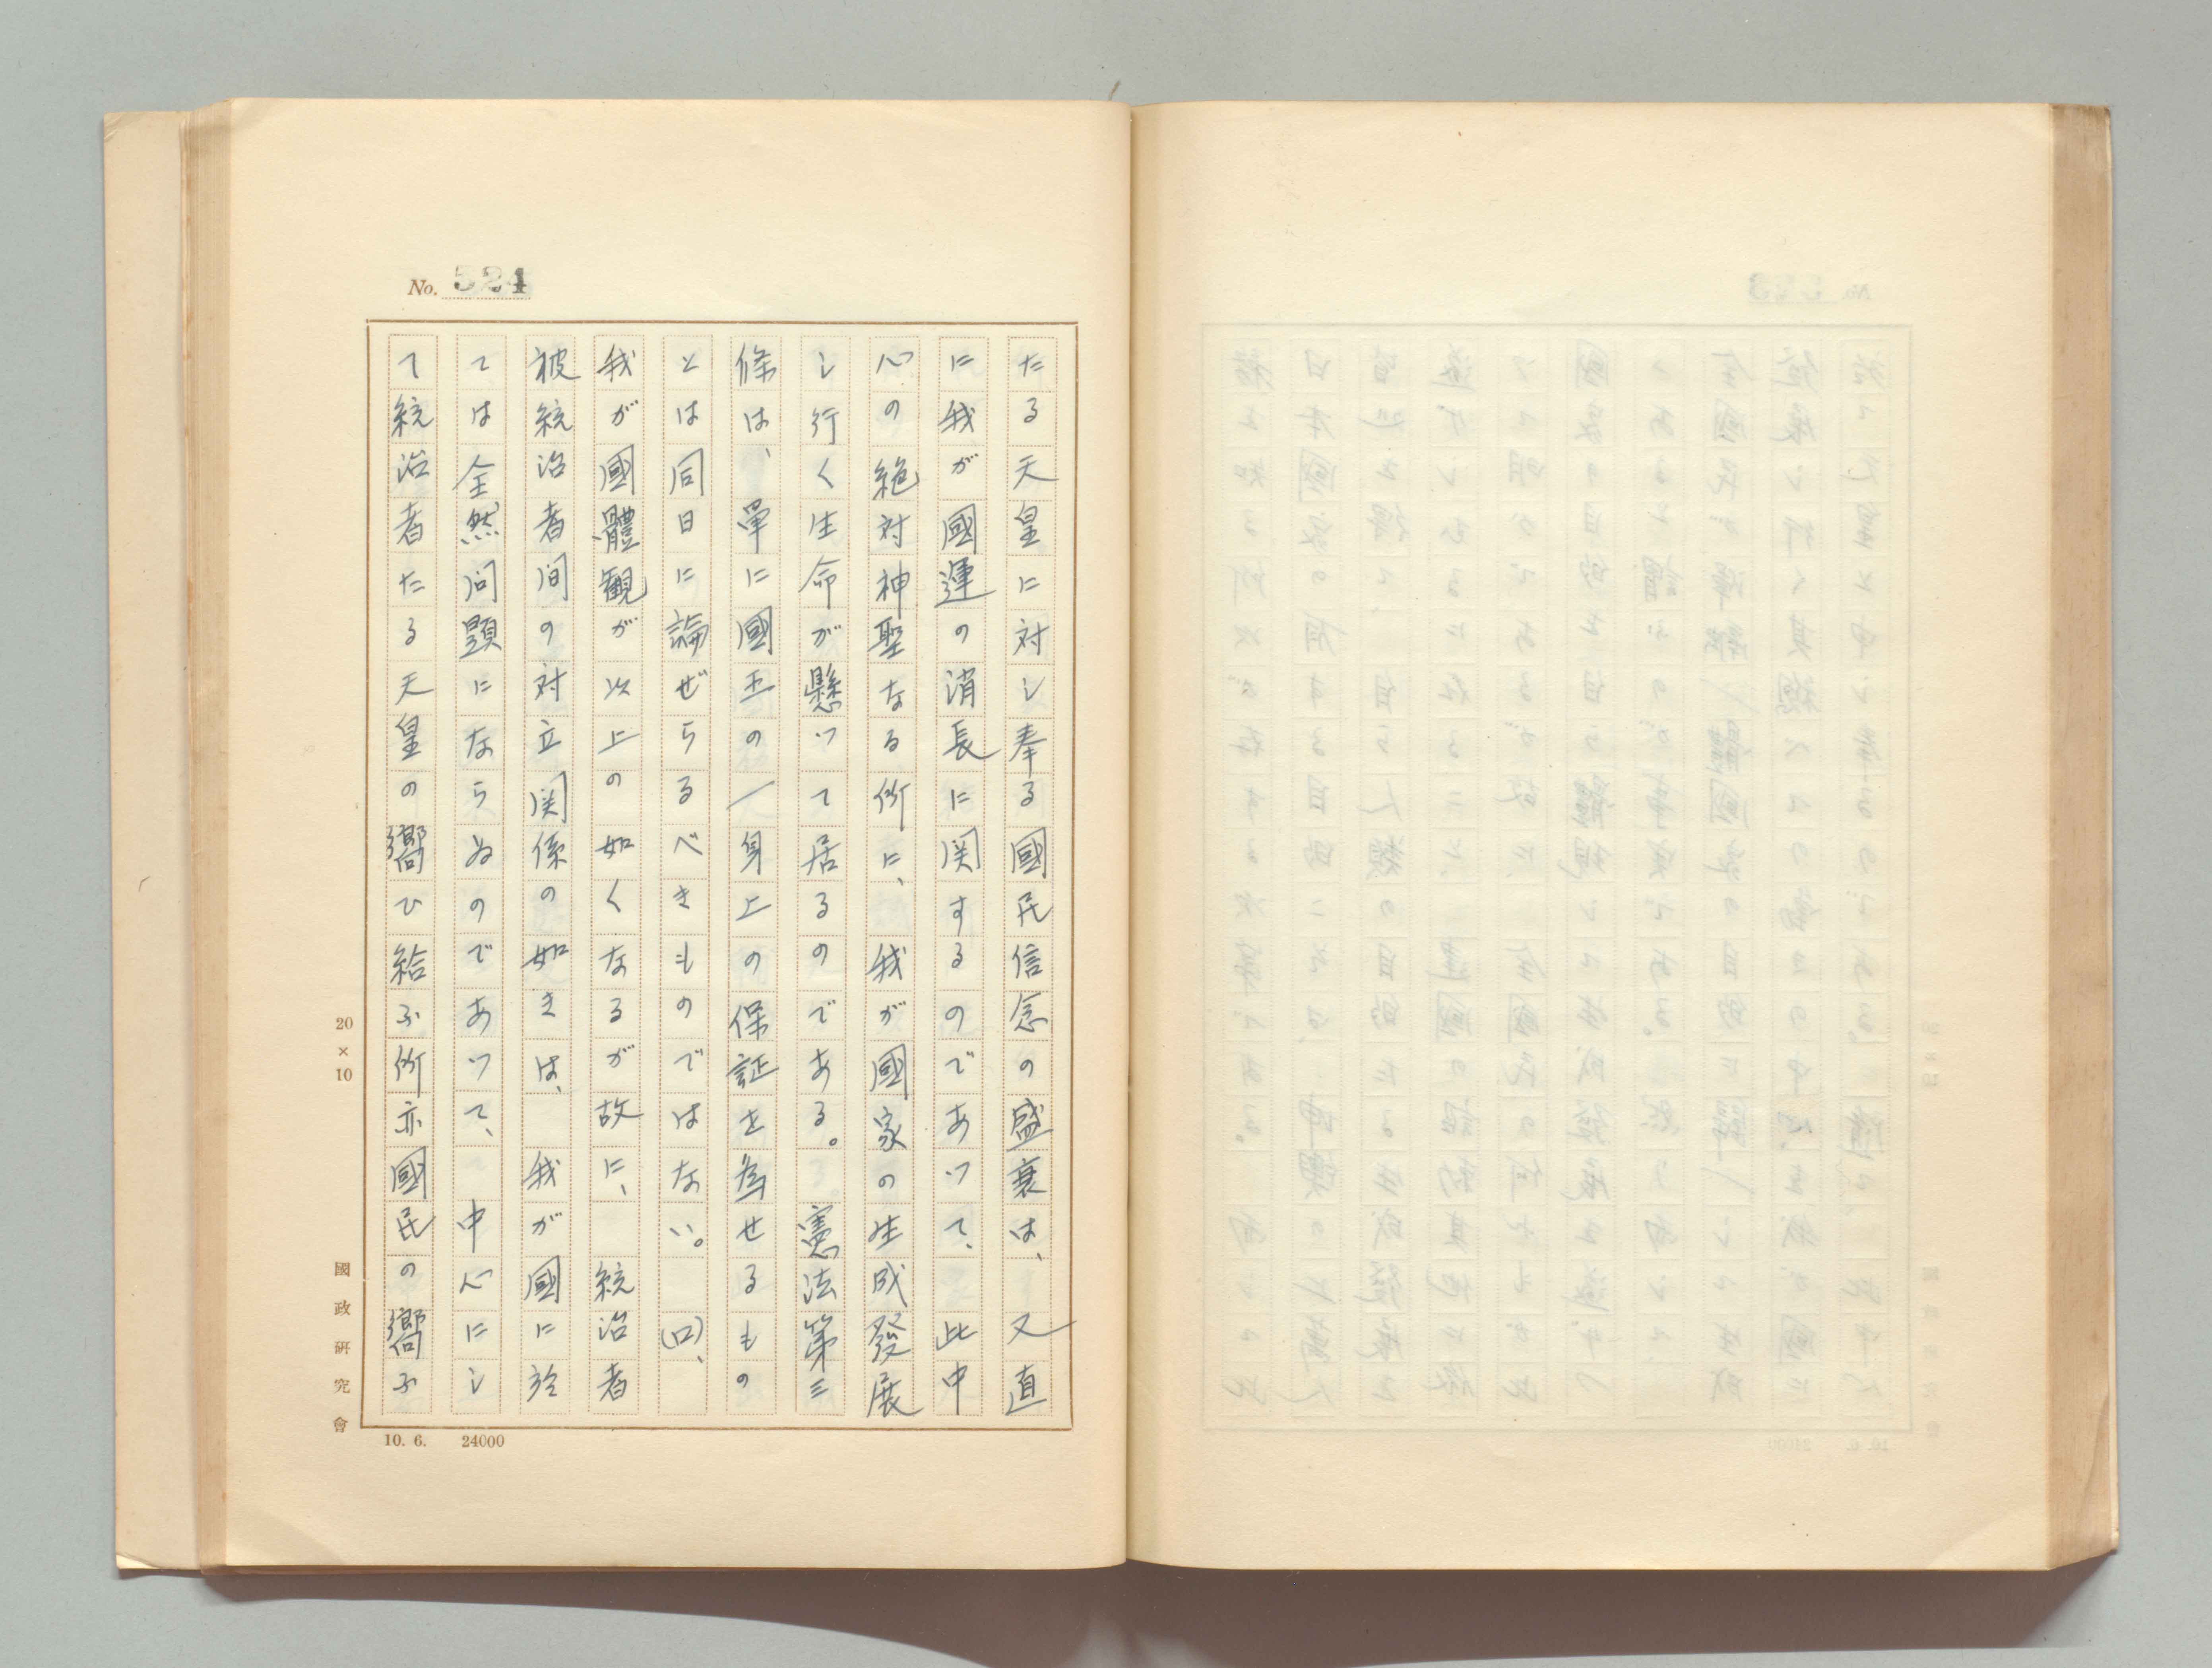 No. 524
たる天皇に対し奉る國民信念の盛衰は、又直
に我が國運の消長に関するのであつて、此中
心の絶対神聖なる所に、我が國家の生成發展
し行く生命が懸つて居るのである。憲法第三
條は、單に國王の一身上の保証を為せるもの
とは同日に論ぜらるべきものではない。(口)、
我が國體観が以上の如くなるが故に、統治者
被統治者间の対立関係の如きは、我が國に於
ては全然问題にならぬのであつて、中心にし
て統治者たる天皇の嚮ひ給ふ所亦國民の嚮ふ
20×10
國政研究會
10. 6. 24000